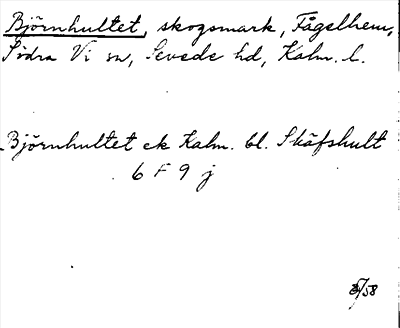 Björnhultet, skogsmark, Fågelhem,
Södra Vi sn, Sevede hd, Kalm. l.
Björnhultet ek Kalm. bl. Skäfshult
6 F 9 j
/58